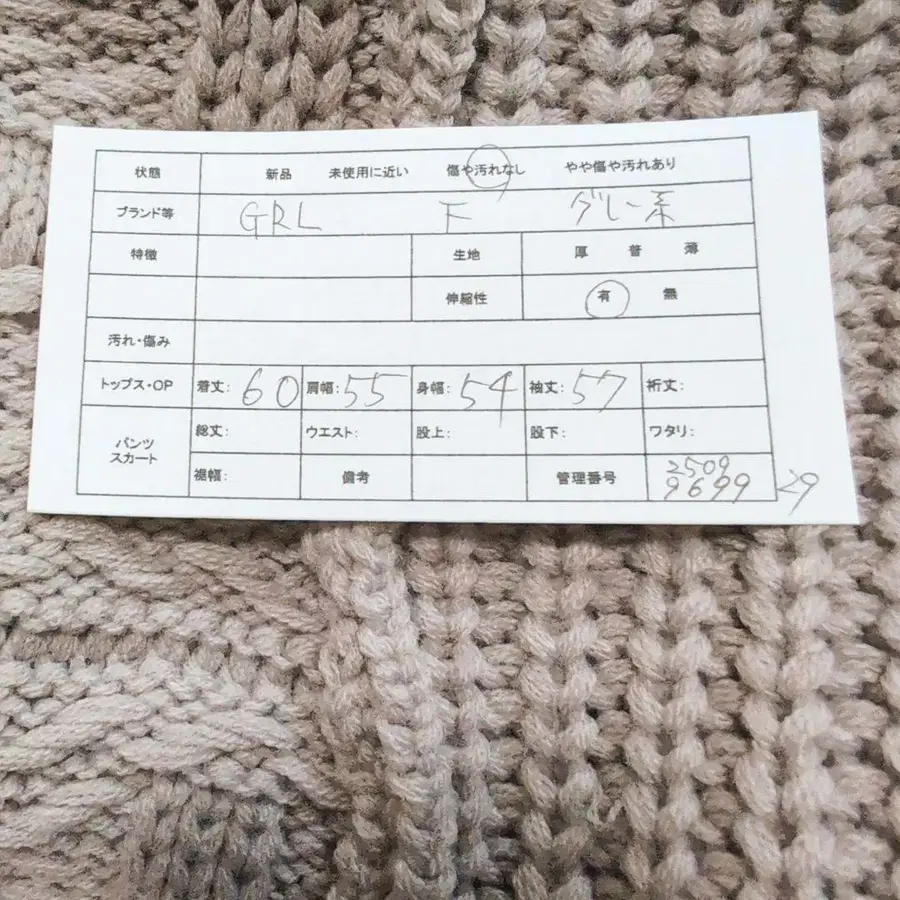 状態 新品 未使用に近い 傷や汚れなし やや傷や汚れあり
ブランド等 GRL F グレー系
特徴 生地 厚 普 薄
伸縮性 有 無
汚れ・傷み
トップス・OP 着丈: 60 肩幅: 55 身幅: 54 袖丈: 57 裄丈:
パンツ
スカート
総丈: ウエスト: 股上: 股下: ワタリ:
裾幅: 備考 管理番号 2509
9699 29